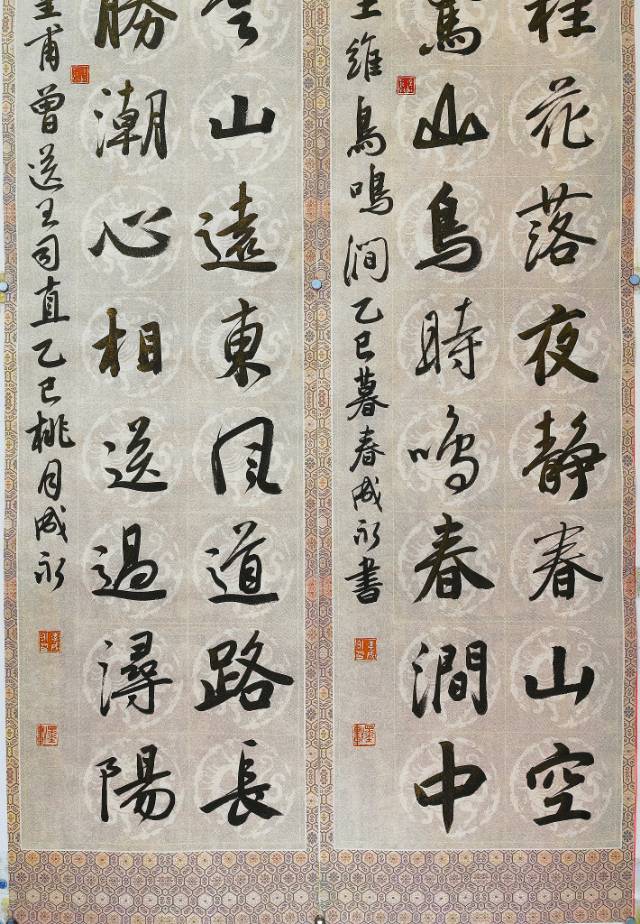 桂花落夜静春山空
驚山鳥時鳴春澗中
王維鳥鳴澗乙巳暮春成永書
山遠東風道路長
勝潮心相送過潯陽
皇甫曾送王司直乙巳桃月成永